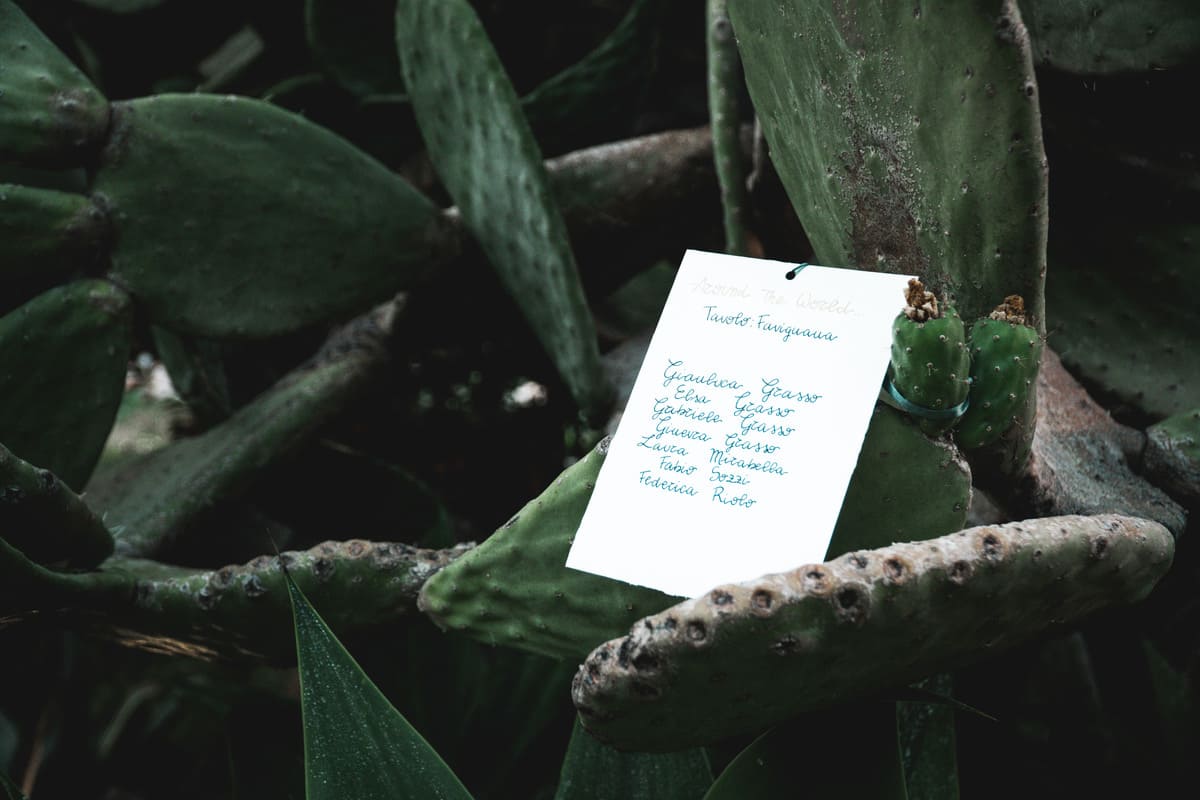 Around The World...
Tavolo: Favignana
Gianluca Grasso
Elsa Grasso
Gabriele Grasso
Ginevra Grasso
Laura Mirabella
Fabio Sozzi
Federica Riolo